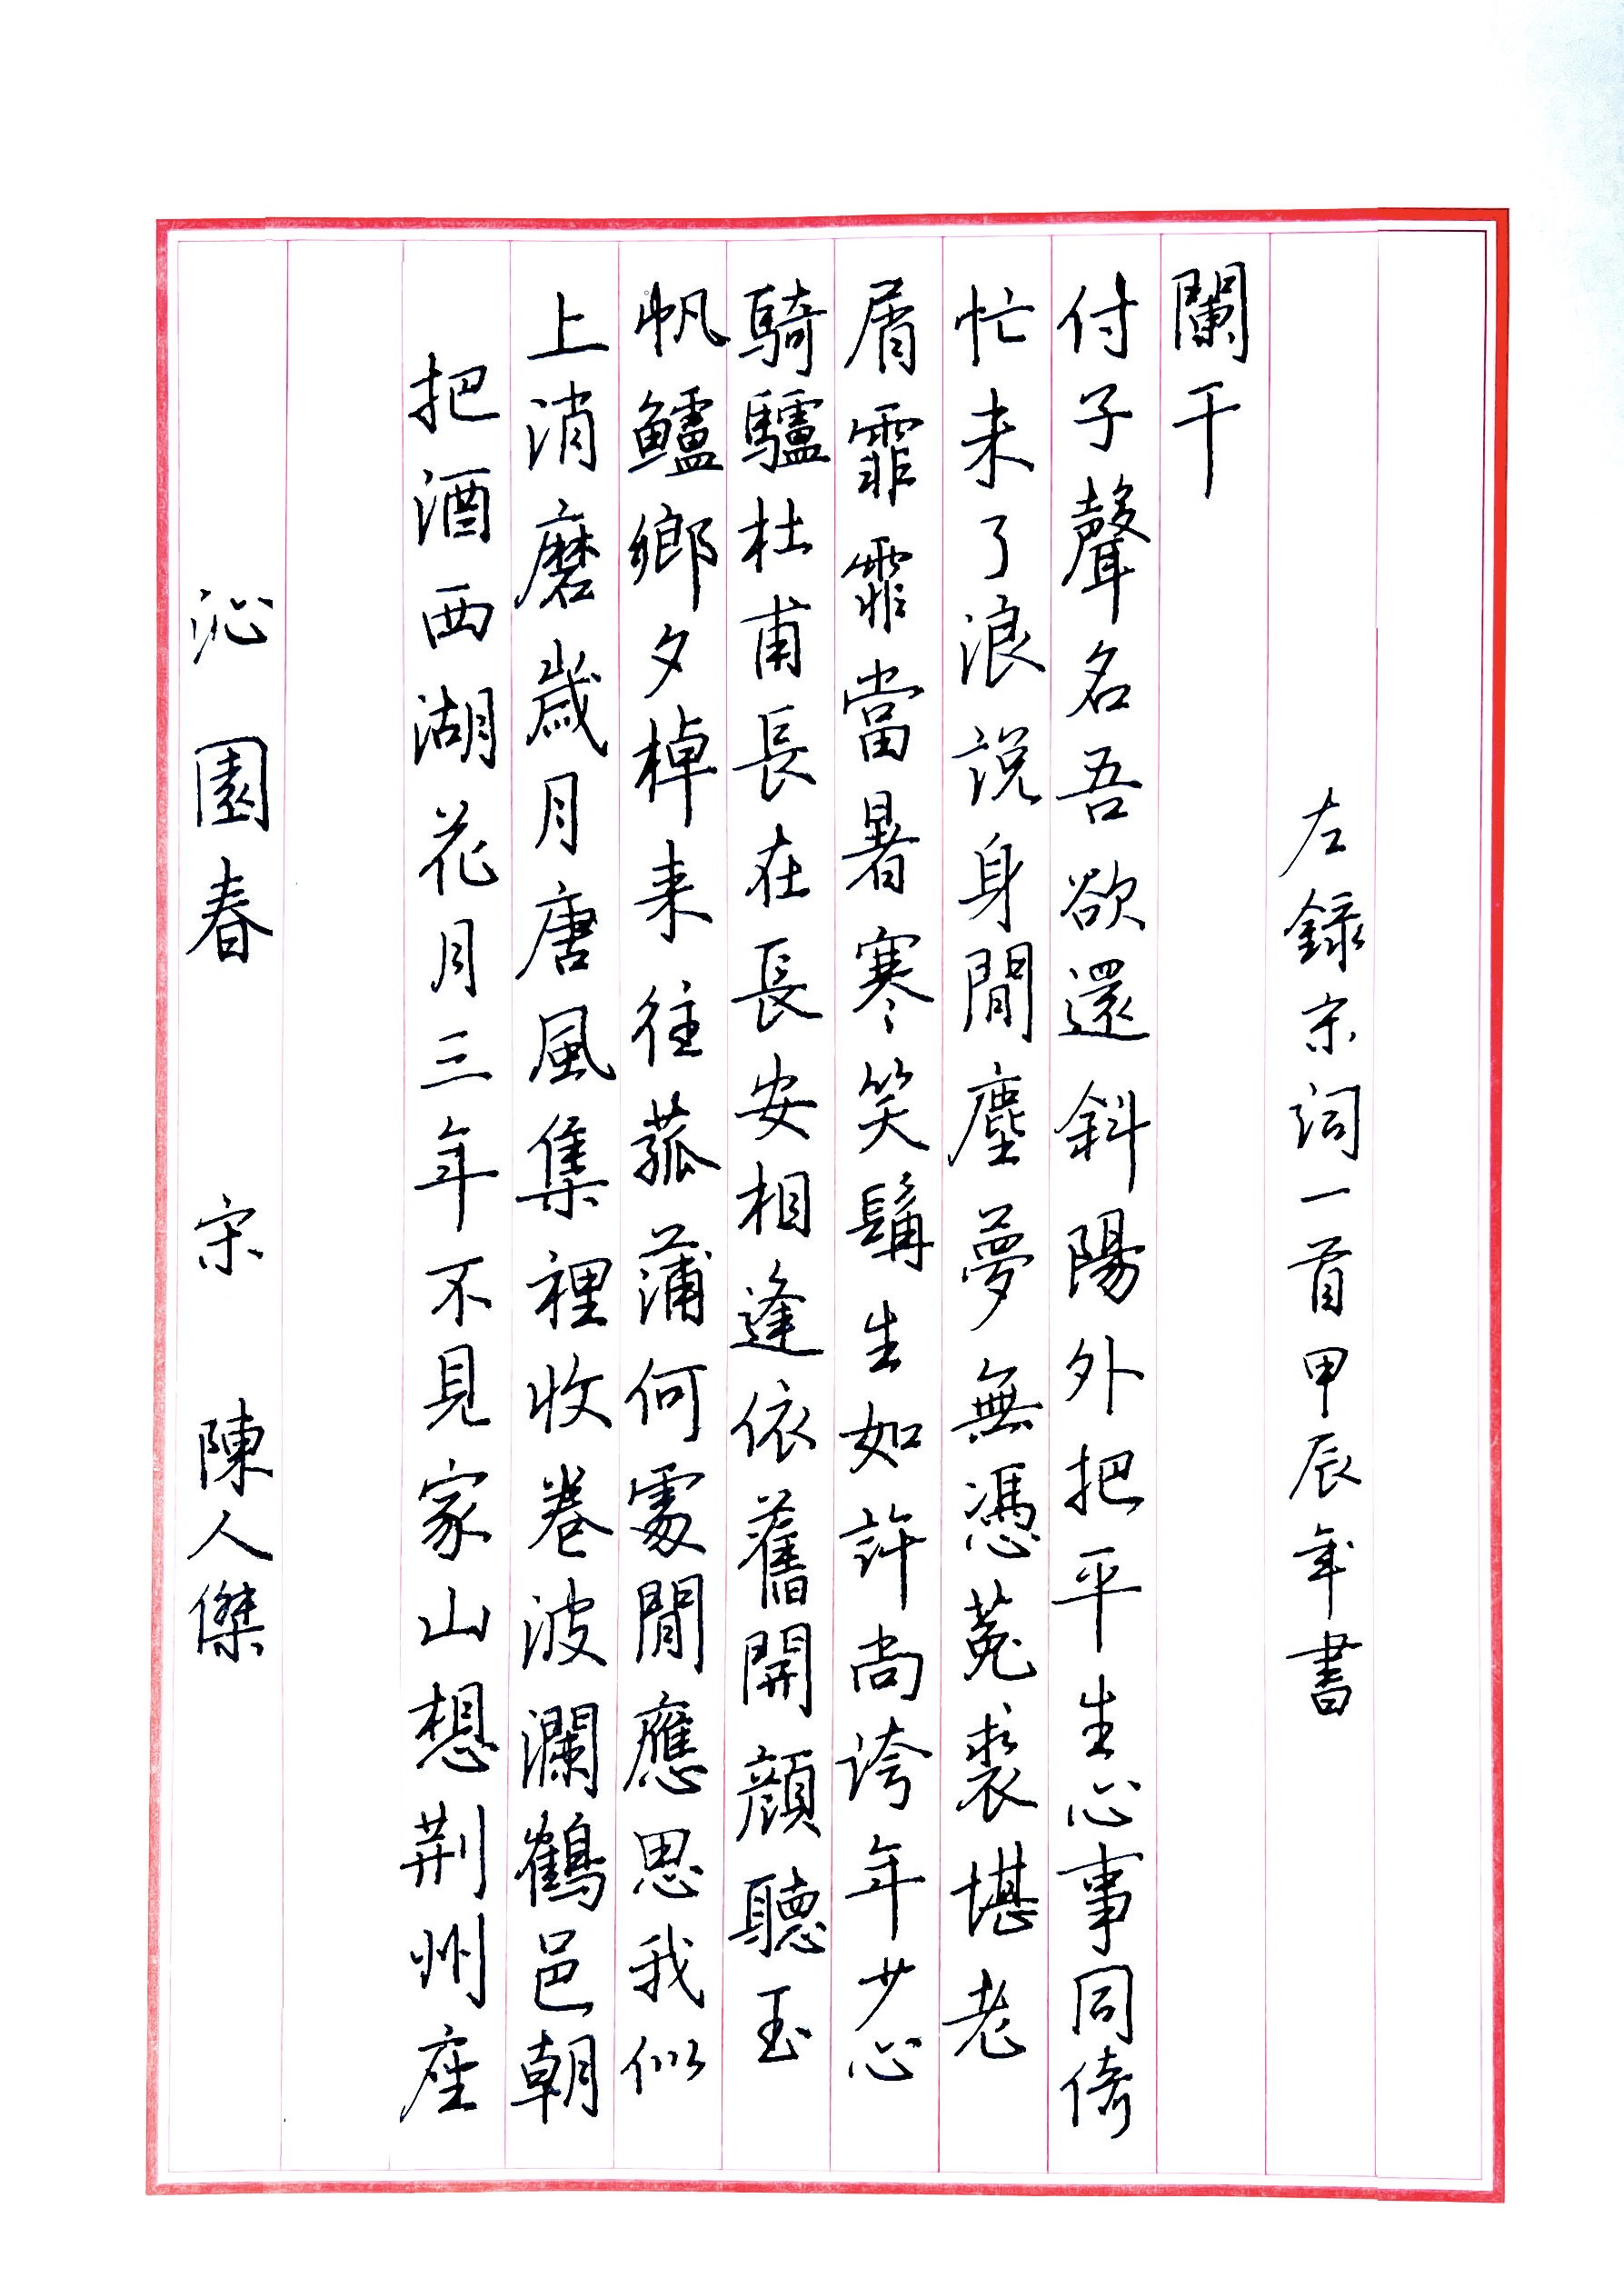 沁園春 宋 陳人傑
把酒西湖花月三年不見家山想荆州座
上消磨歲月唐風集裡收卷波瀾鶴邑朝
帆鱸鄉夕棹来往菰蒲何處閒應思我似
騎驢杜甫長在長安相逢依舊開顔聽玉
屑霏霏當暑寒笑髯生如許尚誇年少心
忙未了浪説身閒塵夢無憑菟裘堪老
付子聲名吾欲還斜陽外把平生心事同倚
闌干
左録宋詞一首甲辰年書